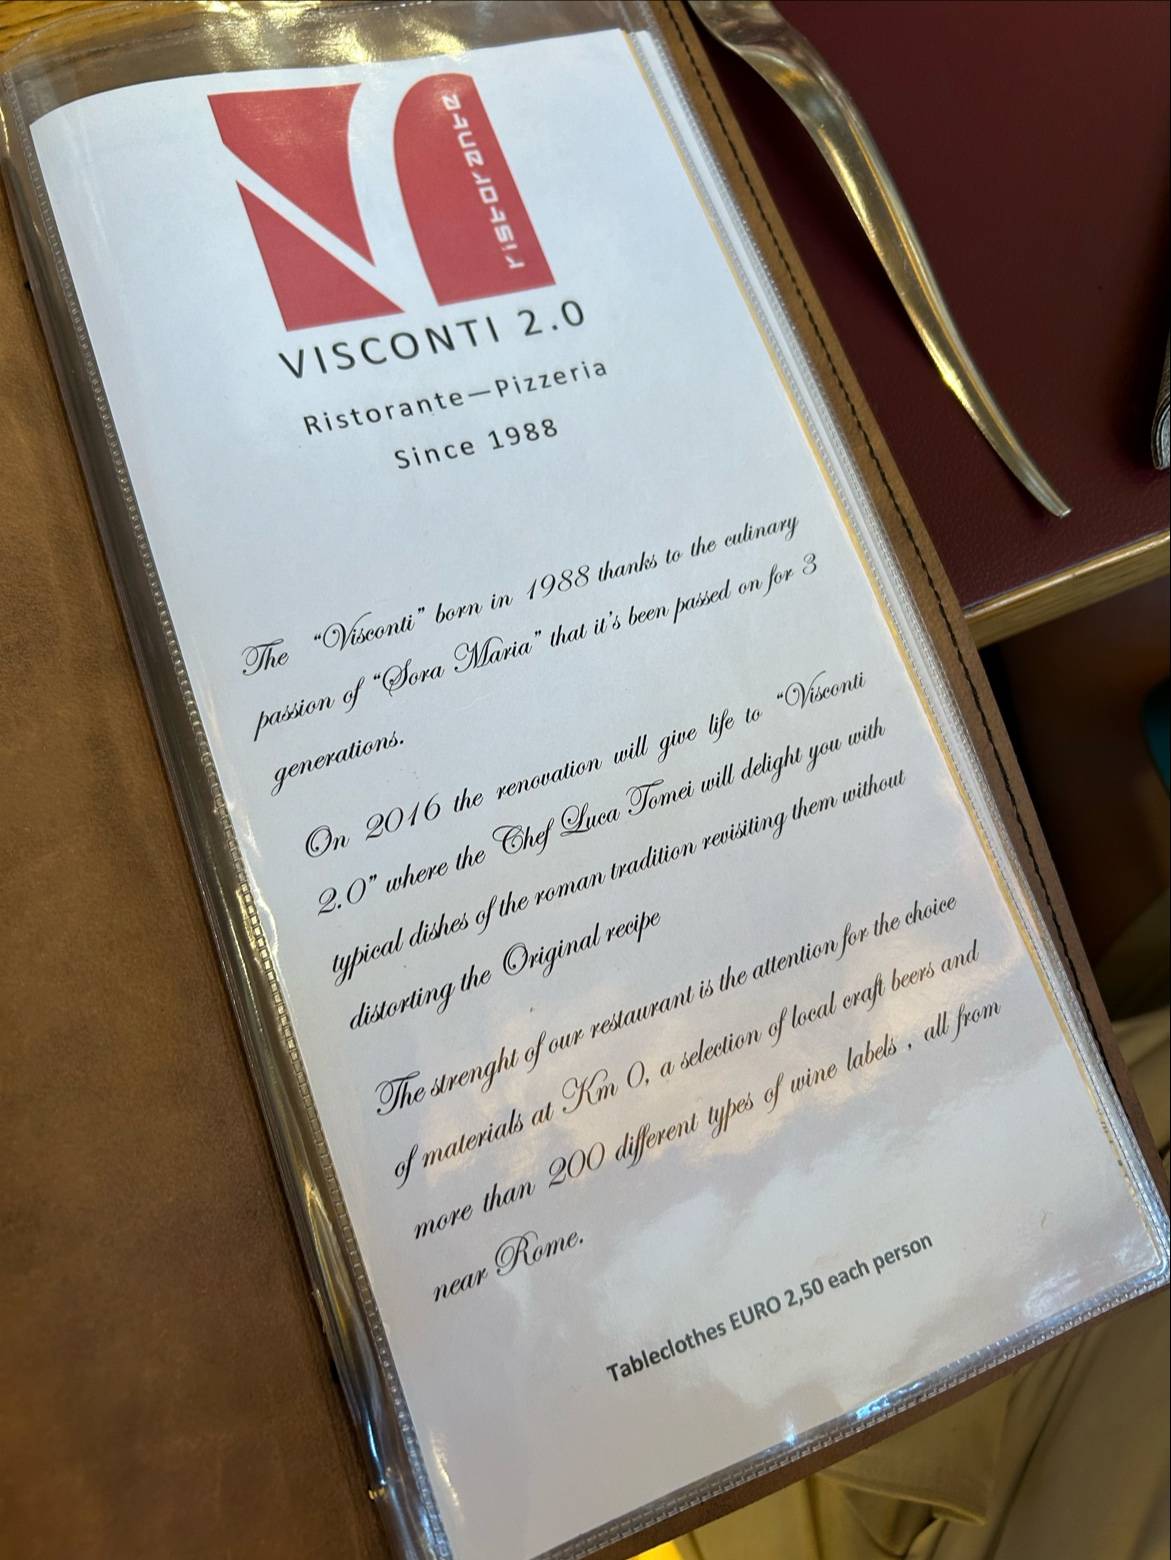 ristorante
VISCONTI 2.0
Ristorante—Pizzeria
Since 1988
The “Visconti” born in 1988 thanks to the culinary
passion of “Sora Maria” that it’s been passed on for 3
generations.
On 2016 the renovation will give life to “Visconti
2.0” where the Chef Luca Tomei will delight you with
typical dishes of the roman tradition revisiting them without
distorting the Original recipe
The strenght of our restaurant is the attention for the choice
of materials at Km 0, a selection of local craft beers and
more than 200 different types of wine labels , all from
near Rome.
Tableclothes EURO 2,50 each person